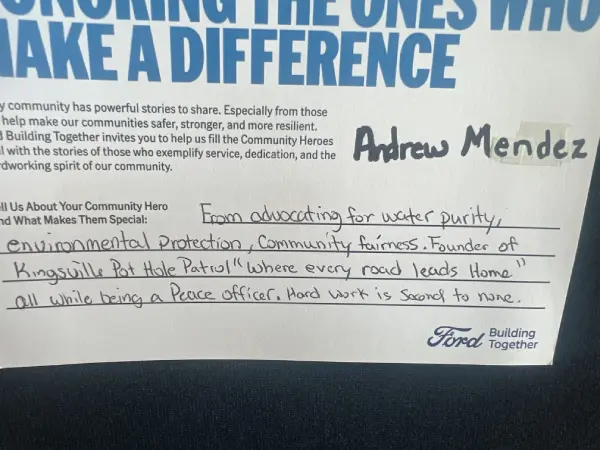 ONORING THE ONES WHO
MAKE A DIFFERENCE
y community has powerful stories to share. Especially from those
help make our communities safer, stronger, and more resilient.
d Building Together invites you to help us fill the Community Heroes
l with the stories of those who exemplify service, dedication, and the
rdworking spirit of our community.
Andrew Mendez
ell Us About Your Community Hero
nd What Makes Them Special:
From advocating for water purity,
environmental Protection, Community fairness. Founder of
Kingsville Pot Hole Patrol "Where every road leads Home"
all while being a Peace officer. Hard work is Second to none.
Ford Building
Together